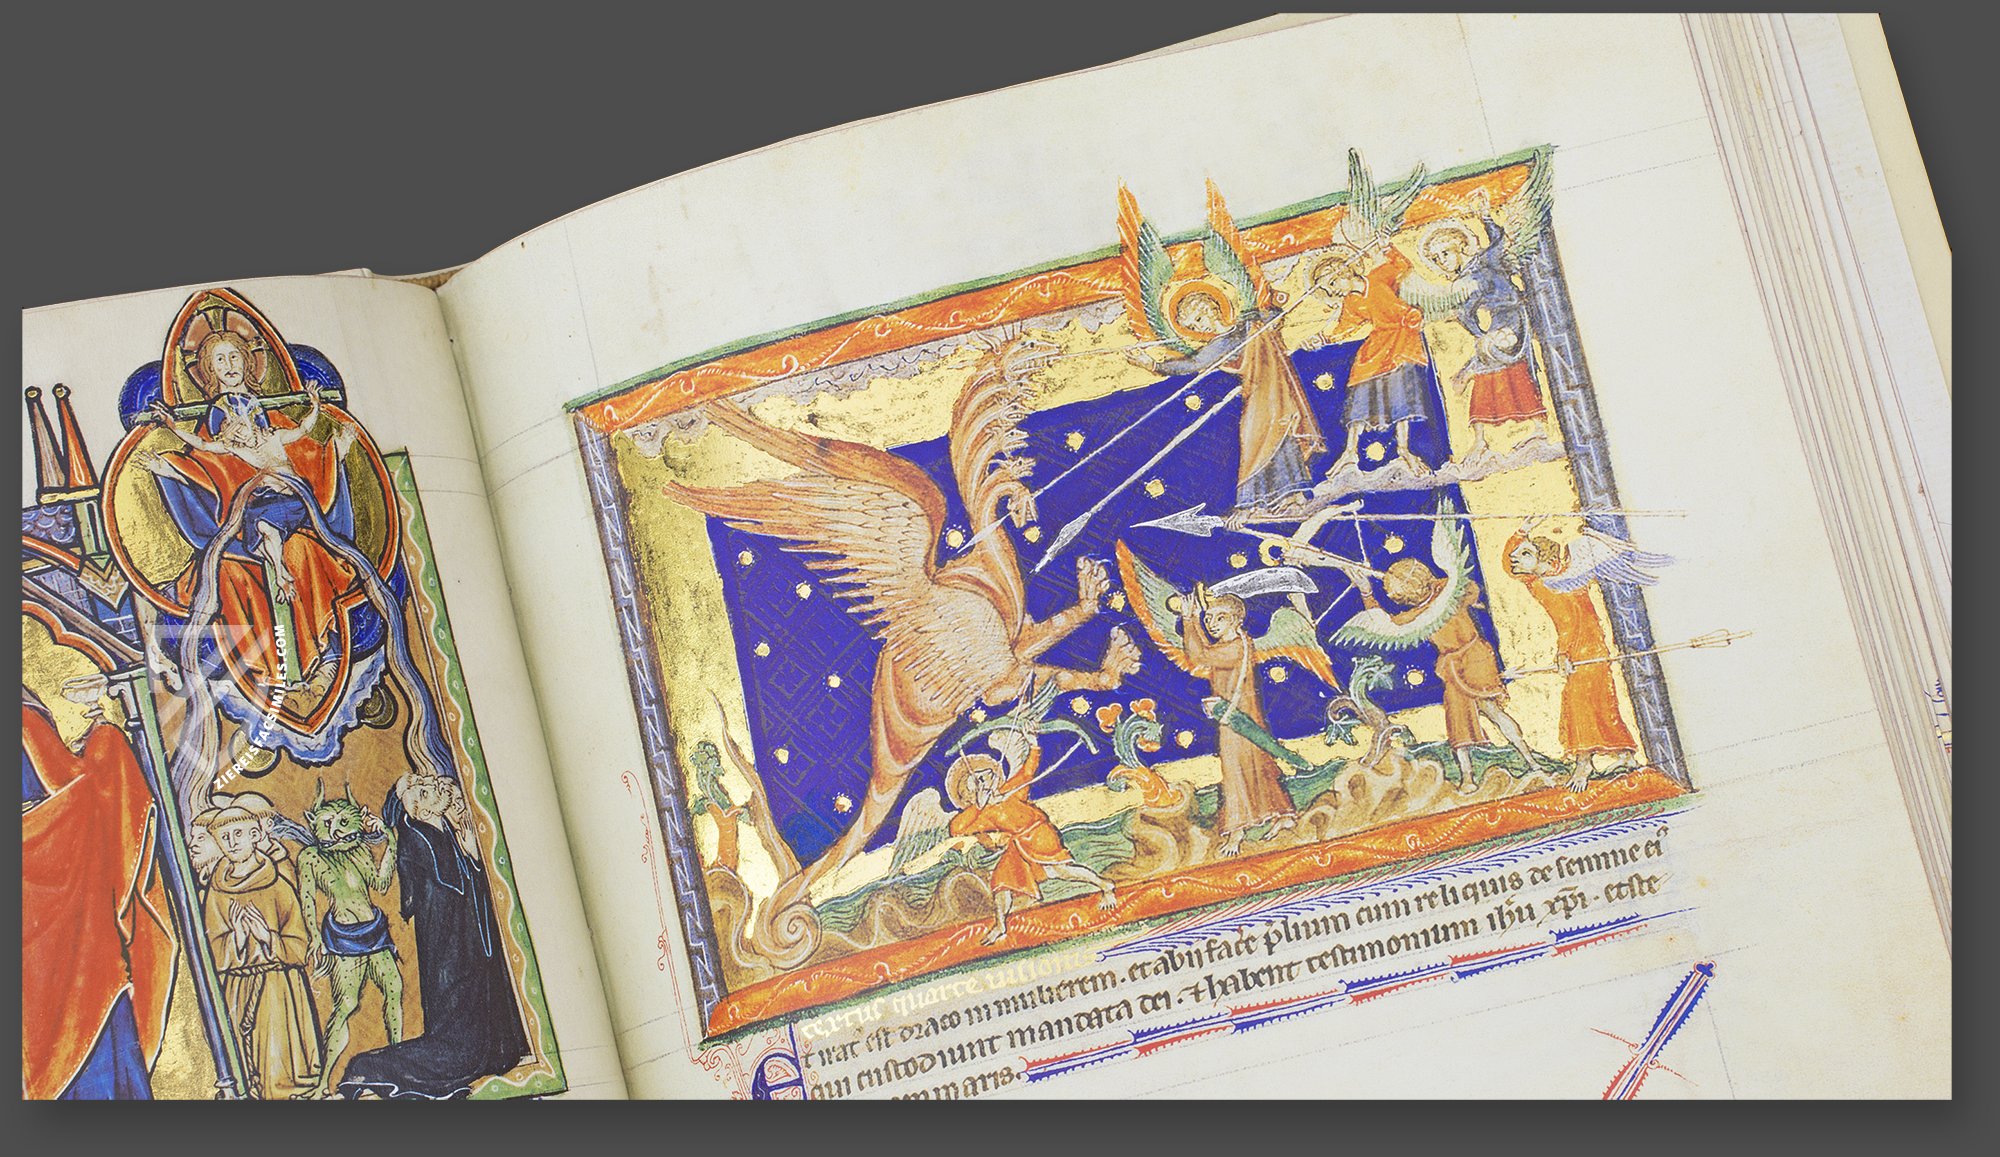 ZIEREISFACSIMILES.COM
textus quarte uisionis
t irat̾ est draco in mulierem. et abijt face p̄lium cum reliquis de semine ei᾽
qui custodiunt mandata dei. ⁊ habent testimonium ih̄u xp̄i. et ste
maris.